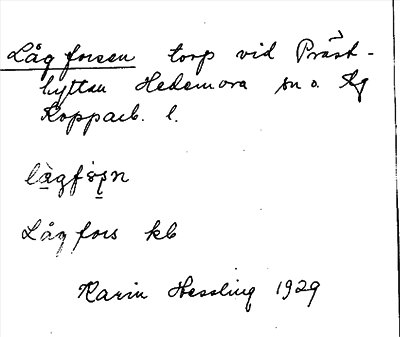 Lågforsen torp vid Präst-
hyttan Hedemora sn o. Kg
Kopparb. l.
lå̀gfɷṣn
Lågfors kb
Karin Hessling 1929